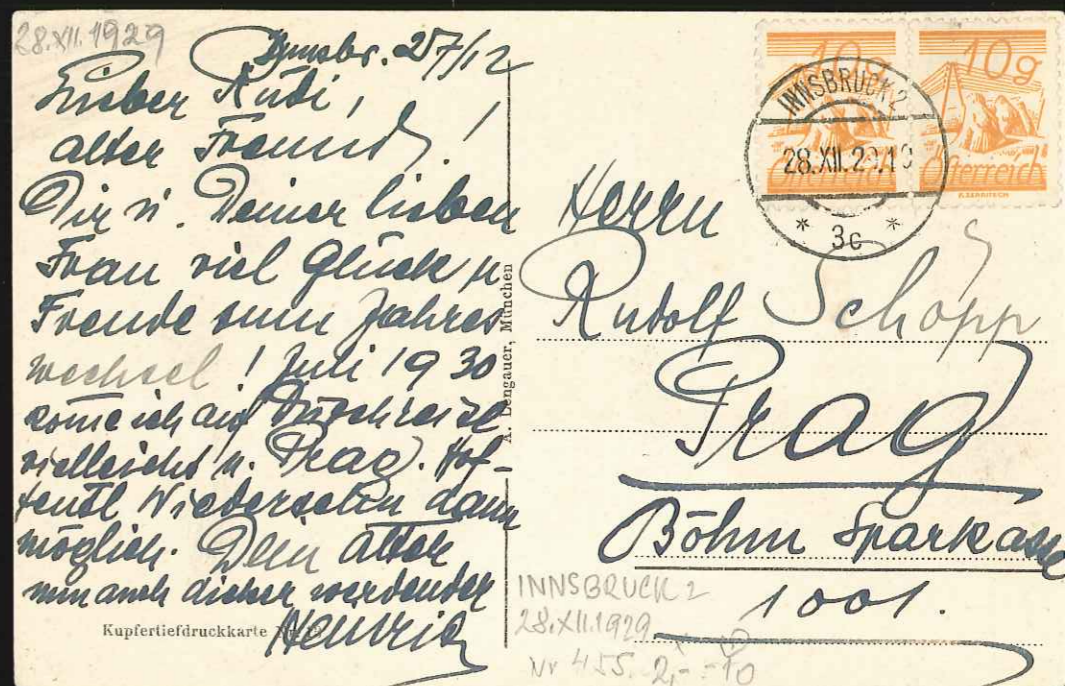 28.XII.1929
Innsbr. 27/12
Lieber Rudi,
alter Freund!
Dir u. Deiner lieben
Frau viel Glück u
Freude zum Jahres
wechsel! Juli 1930
kome ich auf Durchreise
vielleicht n. Prag. Hof-
fentl Wiedersehn dann
möglich. Dein alter
nun auch dicker werdender
Heinrich
Kupfertiefdruckkarte
A. Lengauer, München
10g
10g
Österreich
Österreich
INNSBRUCK 2
28.XII.29.10
* 3c *
Herrn
Rudolf Schöpp
Prag
Böhm Sparkasse
1001.
INNSBRUCK 2
28.XII.1929
Nr 455. 2,-